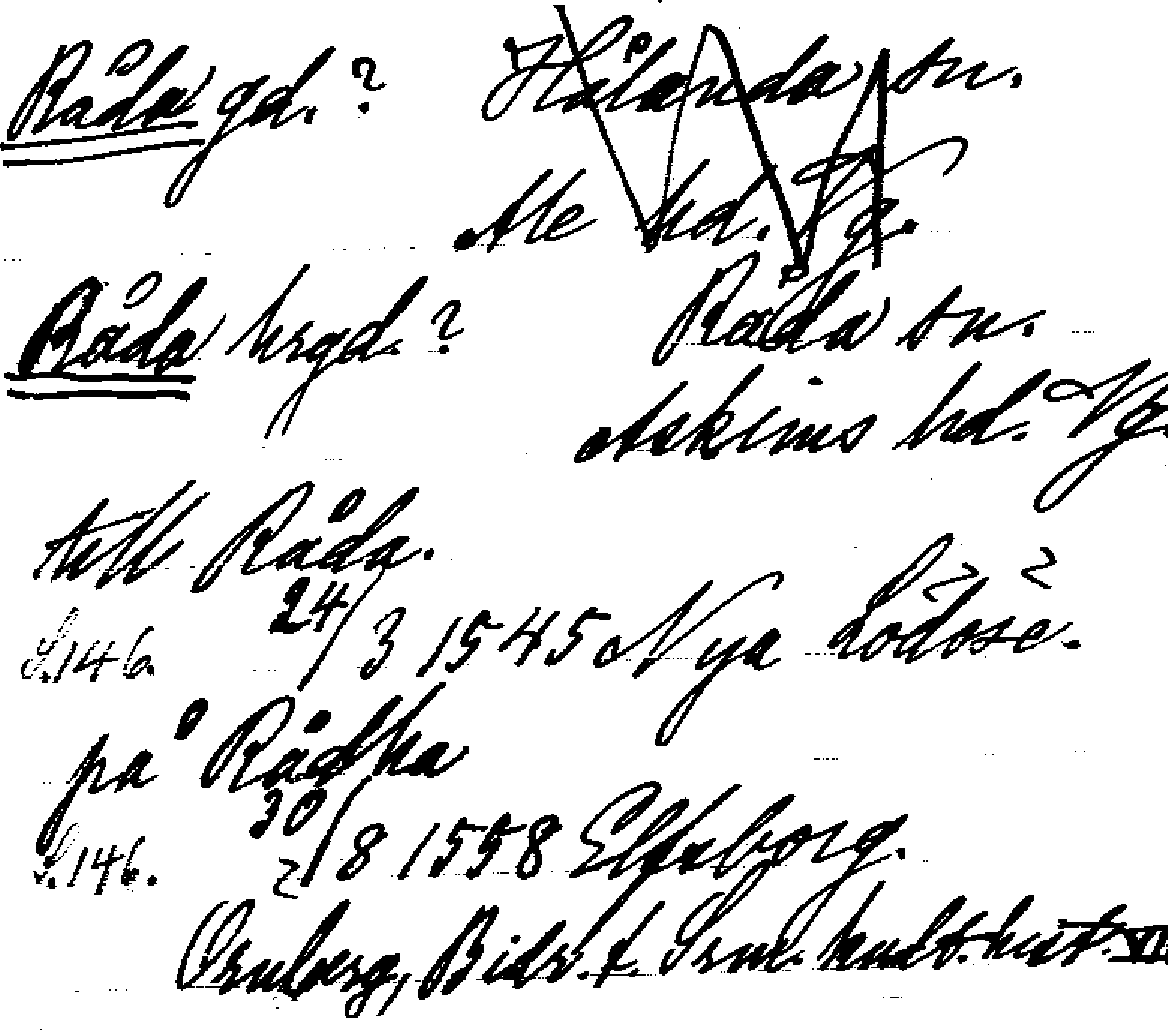 Råda gd.? Hålanda sn.
Ale hd. Vg.
Råda hrgd.? Råda sn.
Askims hd. Vg.
till Råda.
S.146. 24/3 1545 Nya Lödöse.
på Rådha
S.146. 30/8 1558 Elfsborg.
Örnberg, Bidr. t. Sv.